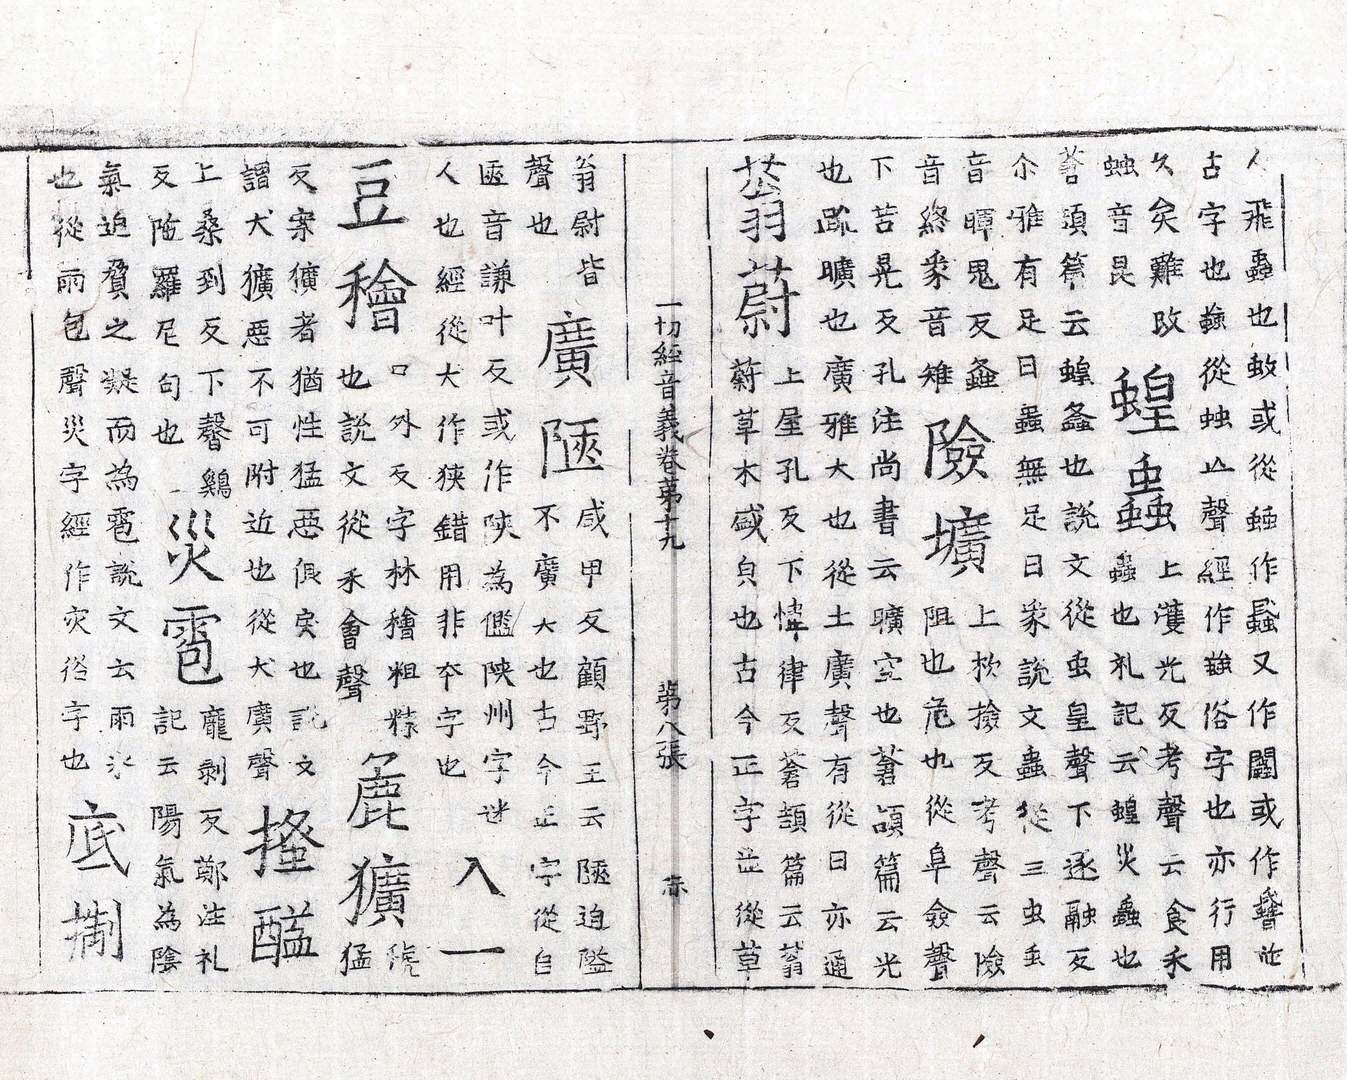 人飛蟲也蚊或從䖵作蟁又作閩或作䘇並
古字也蟁從䖵亡聲經作蚊俗字也亦行用
久矣難改
䖵音昆
蝗蟲
上濩光反考聲云食禾
蟲也礼記云蝗災蟲也
蒼頡篇云蝗螽也說文從虫皇聲下逐融反
尒雅有足曰蟲無足曰豸說文蟲從三虫虫
音暉鬼反螽
音終豸音雉
險壙
上枚撿反考聲云險
阻也危也從阜僉聲
下苦晃反孔注尚書云曠空也蒼頡篇云光
也䟽曠也廣雅大也從土廣聲有從日亦通
蓊蔚
上屋孔反下愇律反蒼頡篇云蓊
蔚草木盛皃也古今正字並從草
翁尉皆
聲也
廣陿
咸甲反顧野王云陿迫隘
不廣大也古今正字從𨸏
匧音謙叶反或作陜為儖陜州字迷
人也經從犬作狹錯用非本字也
入一
豆穬
口外反字林穬粗糠
也說文從禾會聲
麁獷
虢猛
反案獷者猶性猛惡佷戾也說文
謂犬獷惡不可附近也從犬廣聲
搔醘
上桑到反下謦鷄
反陁羅尼句也
災雹
龐剥反鄭注礼
記云陽氣為陰
氣迫脅之凝而為雹說文云雨氷
也從雨包聲災字經作灾俗字也
底㨖
一切經音義卷第十九
第八張
亦